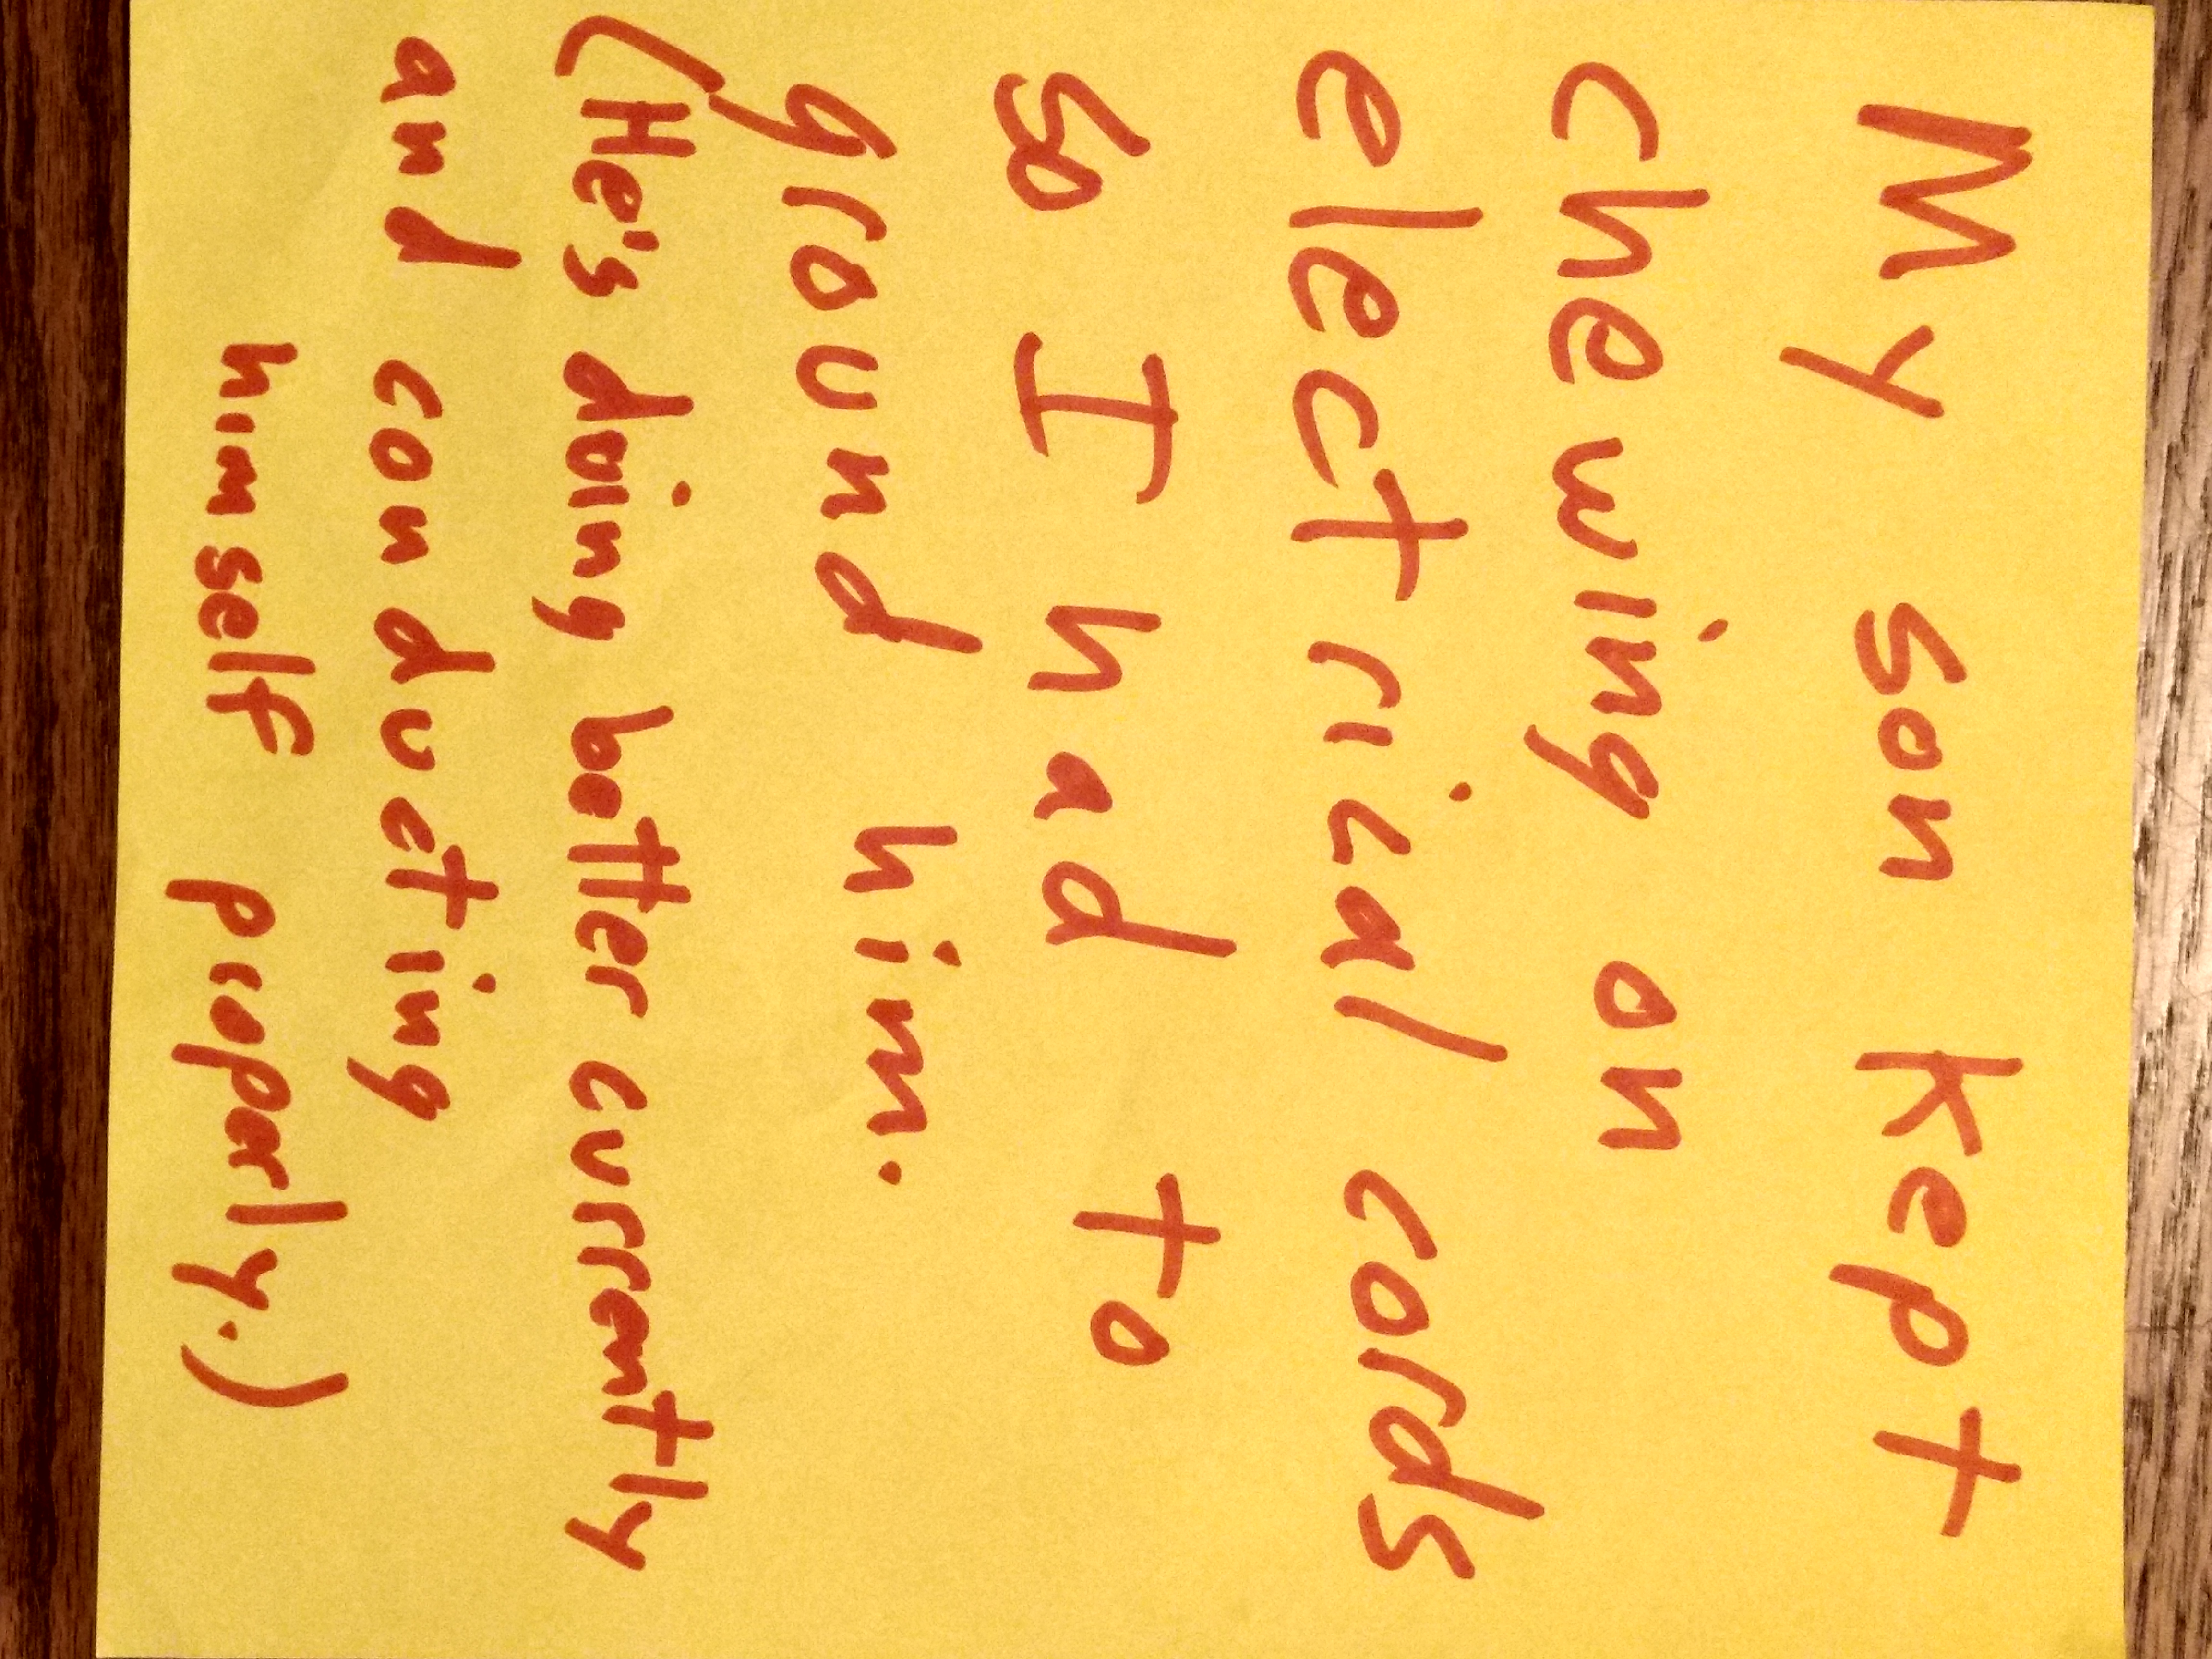 My son kept
chewing on
electrical cords
so I had to
ground him.
(He's doing better currently
and conducting
himself properly.)